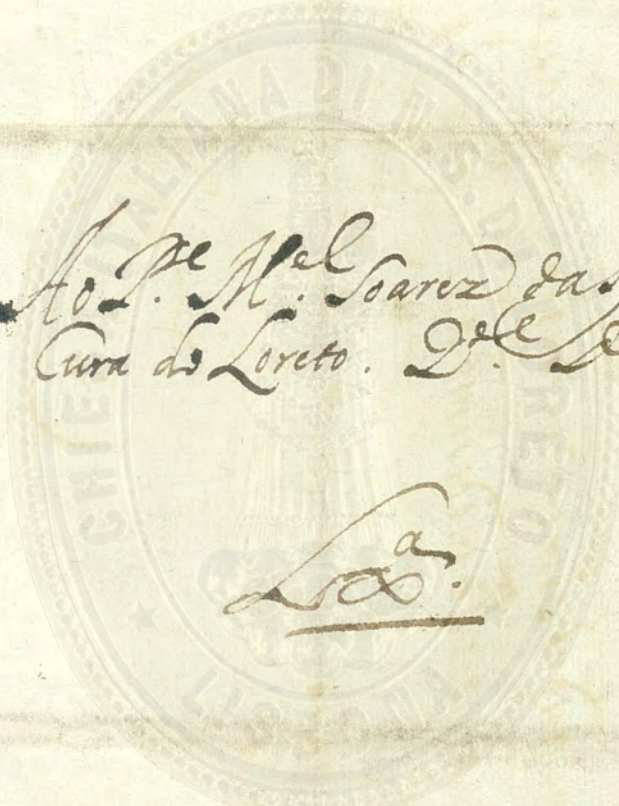 Ao P.e M.el Soarez da
Cura de Loreto. D.e
Lxa.
CHIESA ITALIANA DI N. S. DI LORETO
LISBONA